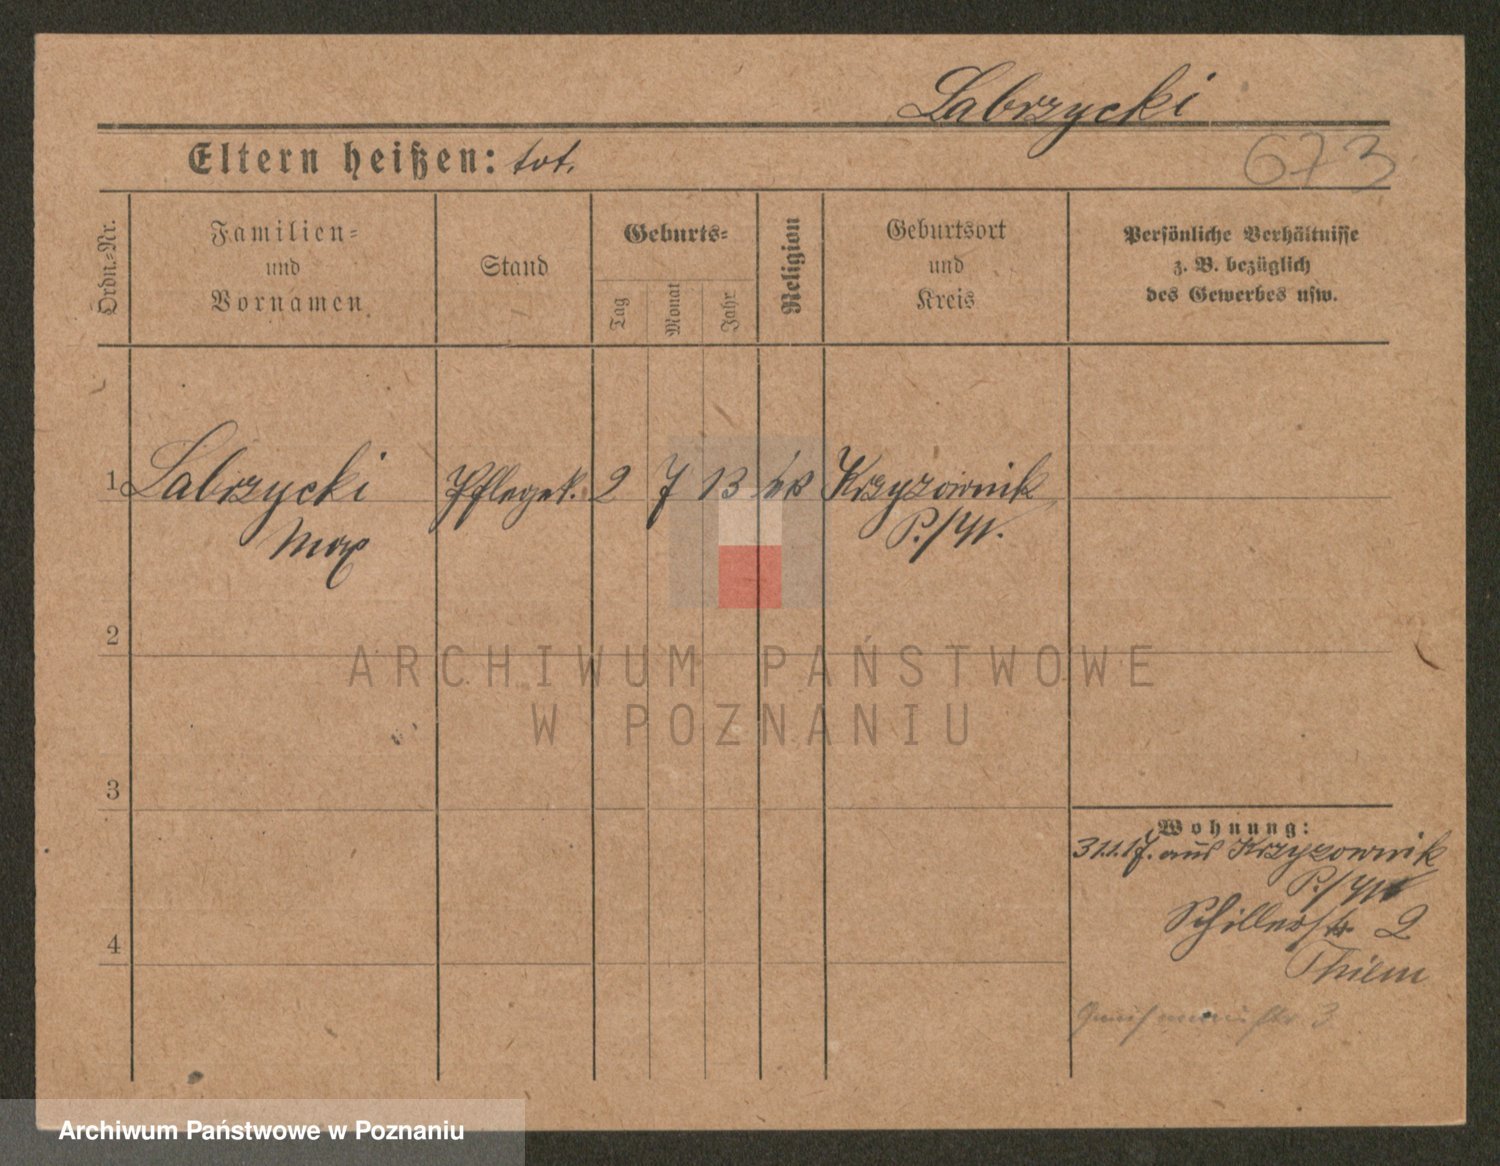 Labrzycki
Eltern heißen: tot.
673
Ordn.-Nr.
Familien-
und
Vornamen
Stand
Geburts-
Tag
Monat
Jahr
Religion
Geburtsort
und
Kreis
Persönliche Verhältnisse
z. B. bezüglich
des Gewerbes usw.
1 Labrzycki Pflegek. 2 7 13 Krzyzownik
Max P./W.
2
ARCHIWUM PAŃSTWOWE
W POZNANIU
3
Wohnung:
31.1.17. aus Krzyzownik
P./W.
Schillerstr. 2
4
Thiem
3
Archiwum Państwowe w Poznaniu